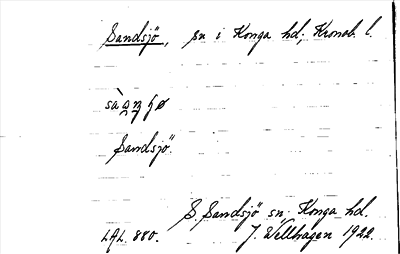 Sandsjö, sn i Konga hd, Kronob. l.
Sandsjö.
S. Sandsjö sn, Konga hd.
LAL. 880. J. Wellhagen 1922.